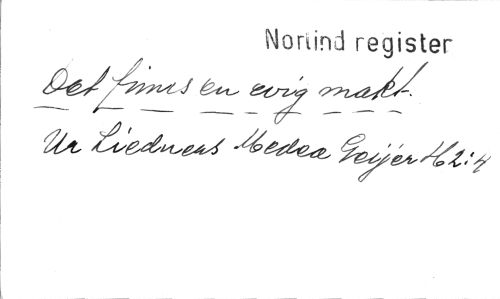 Norlind register
Det finns en evig makt.
Ur Liedners Medea Geijer H2:4